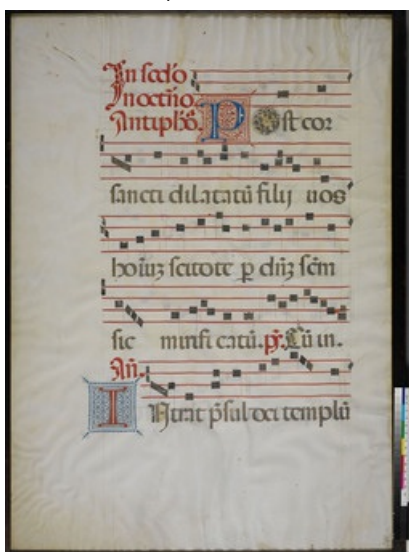 In scd̄o
Inoctn̄o
Antiph̄o. P Ost cor
sancti dilatatū filij uos
hoīuȝ scitote p dn̄ȝ scm̄
sic mirificatū. p̄s. Cū in.
An̄.
I Ntrat p̄sul dei templū